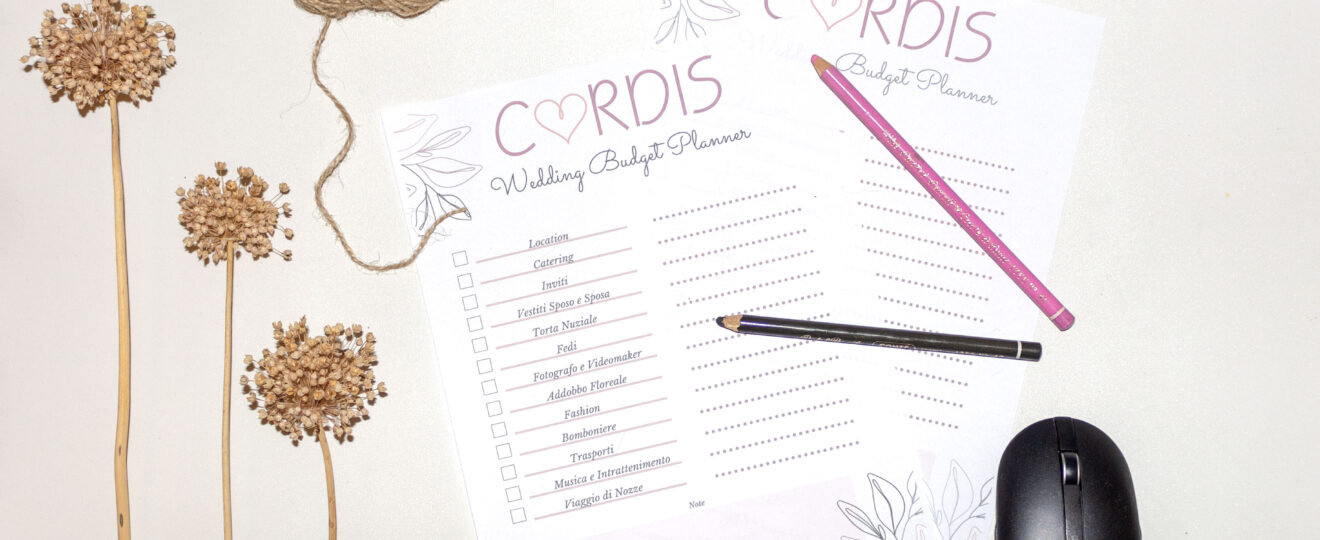 CORDIS
Wedding Budget Planner
Location
Catering
Inviti
Vestiti Sposo e Sposa
Torta Nuziale
Fedi
Fotografo e Videomaker
Addobbo Floreale
Fashion
Bomboniere
Trasporti
Musica e Intrattenimento
Viaggio di Nozze
Note
CORDIS
Wedding Budget Planner